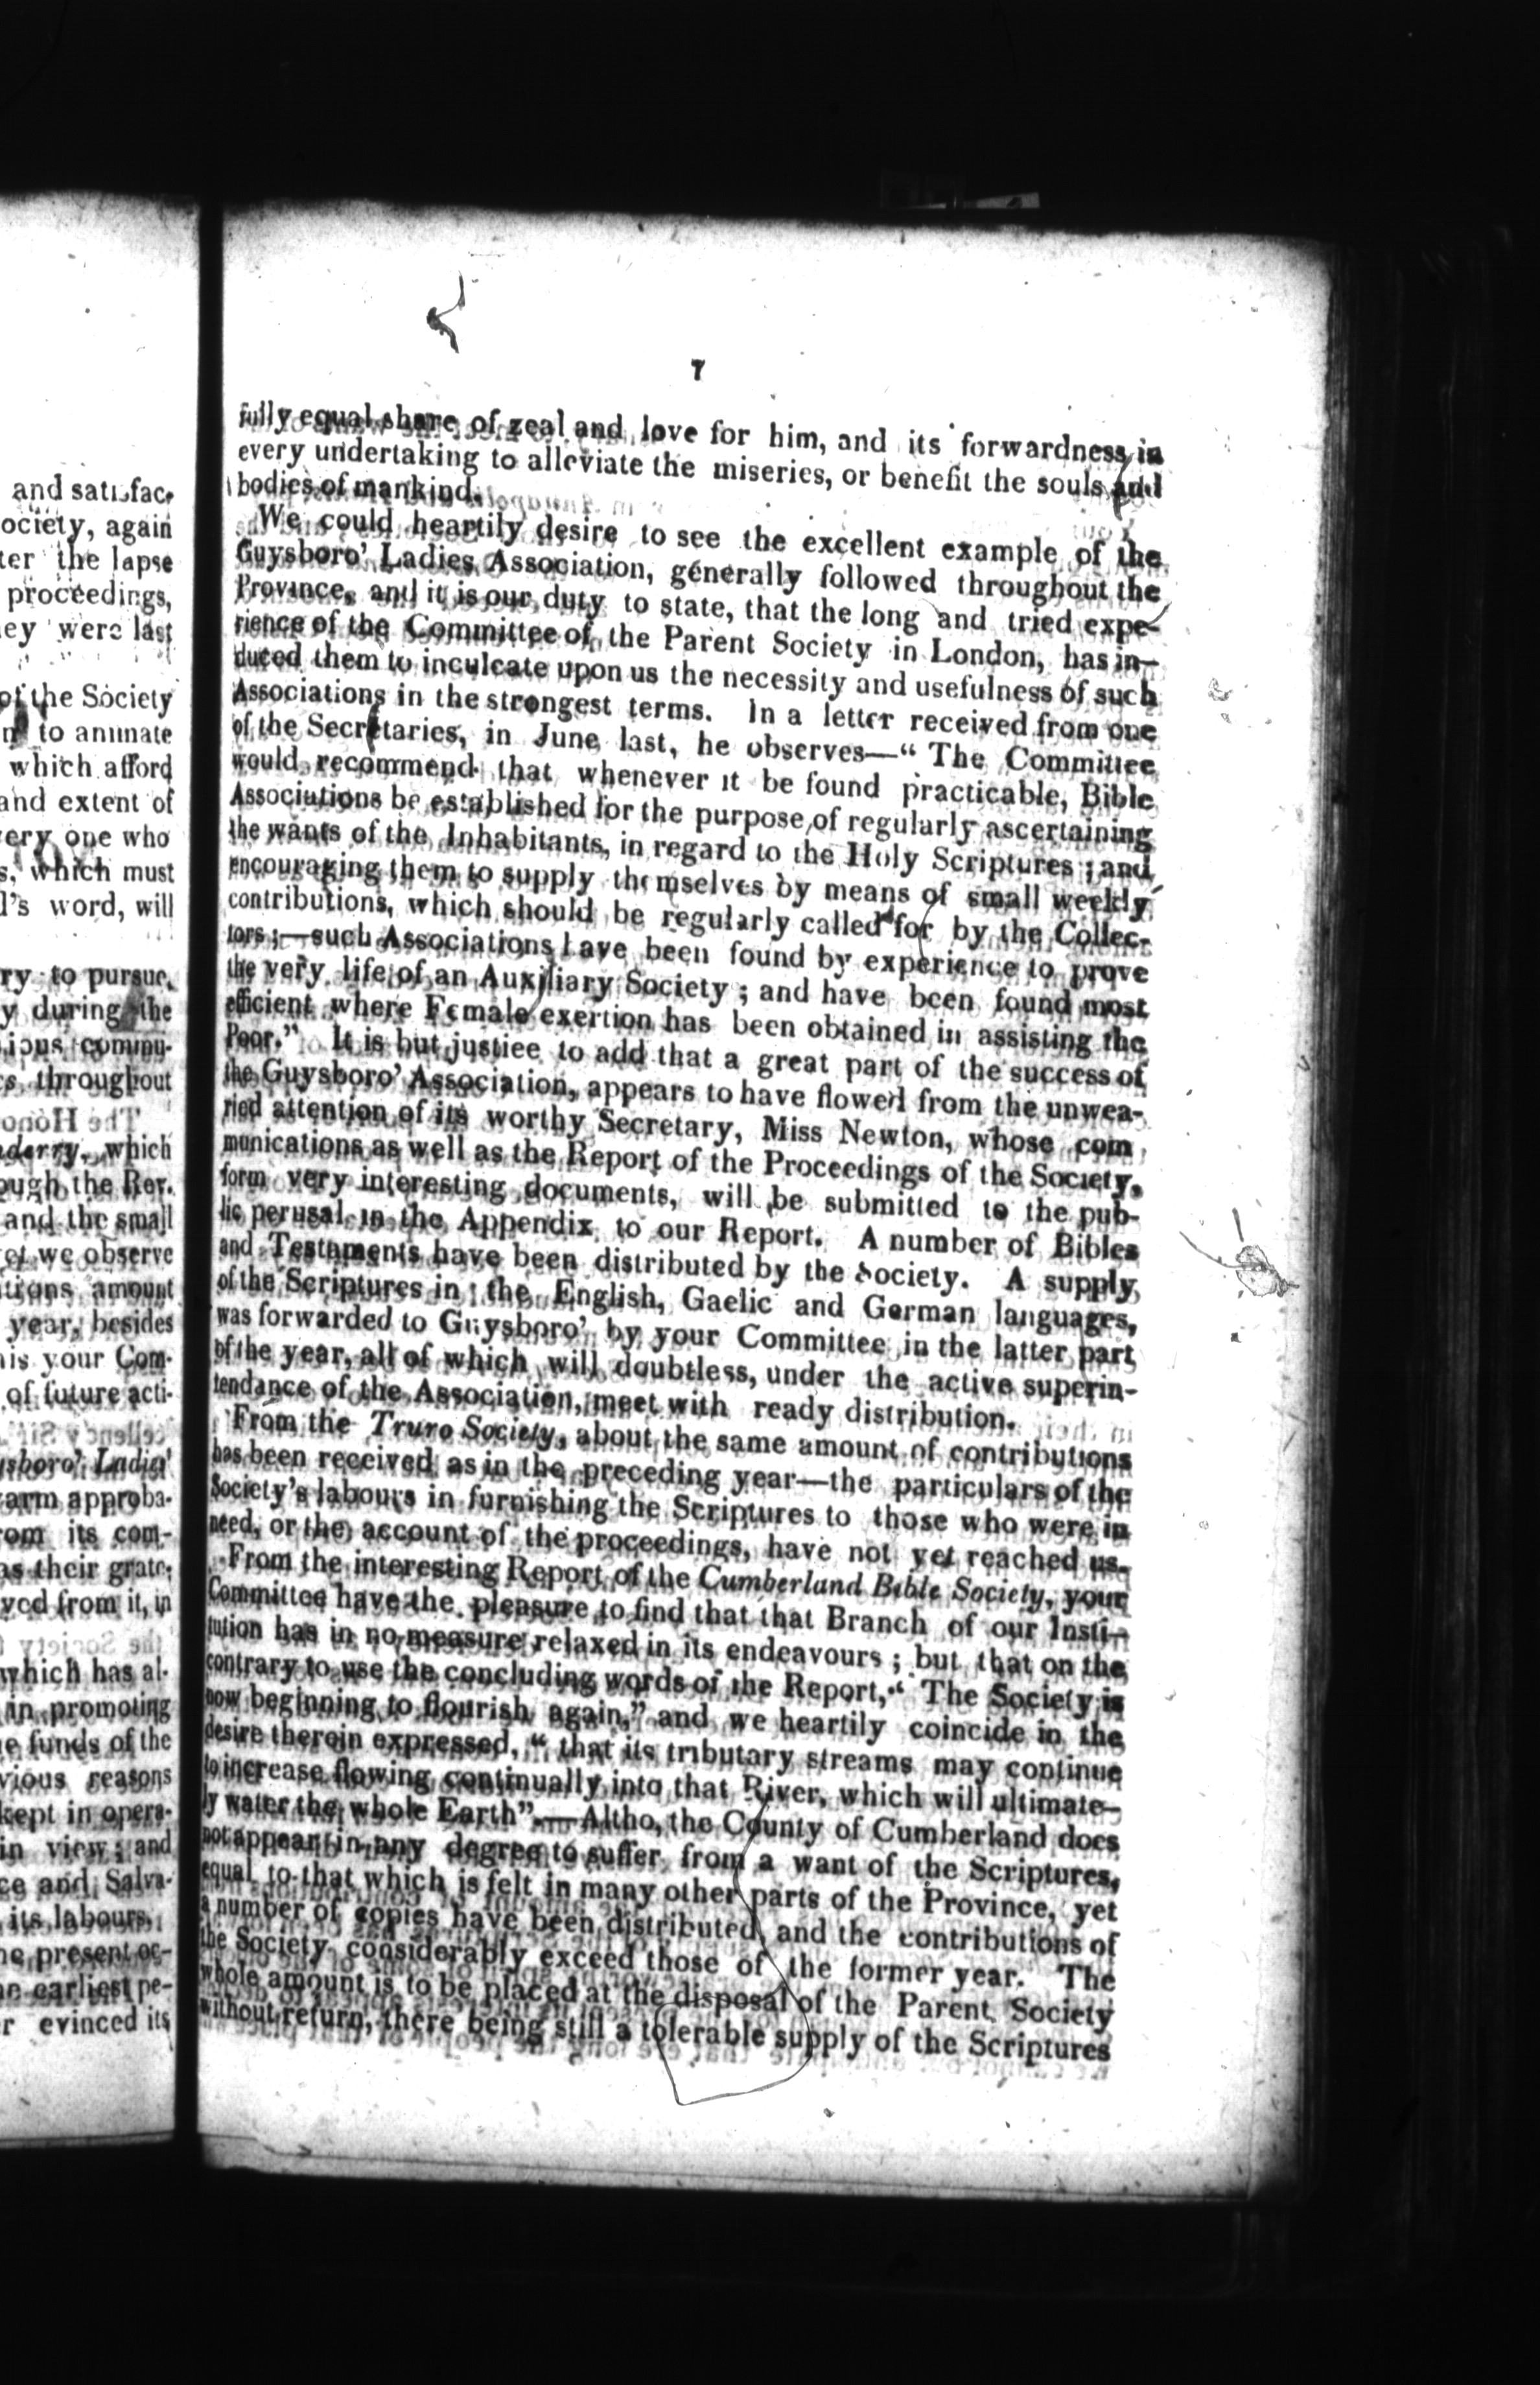 and satisfac-
ociety, again
ter the lapse
proceedings,
ey were last
of the Society
n to animate
which afford
and extent of
ery one who
s, which must
l's word, will
ry to pursue,
y during the
ious commu-
s throughout
derry, which
ough the Rev.
and the small
et we observe
tions amount
year, besides
is your Com-
of future acti-
sboro' Ladies'
arm approba-
om its com-
as their grate-
ved from it, in
which has al-
in promoting
e funds of the
vious reasons
kept in opera-
in view; and
ce and Salva-
its labours,
he present oc-
e earliest pe-
r evinced its
7
fully equal share of zeal and love for him, and its forwardness in
every undertaking to alleviate the miseries, or benefit the souls and
bodies of mankind.
We could heartily desire to see the excellent example of the
Guysboro' Ladies Association, generally followed throughout the
Province, and it is our duty to state, that the long and tried expe-
rience of the Committee of the Parent Society in London, has in-
duced them to inculcate upon us the necessity and usefulness of such
Associations in the strongest terms. In a letter received from one
of the Secretaries, in June last, he observes—“ The Committee
would recommend that whenever it be found practicable, Bible
Associations be established for the purpose of regularly ascertaining
the wants of the Inhabitants, in regard to the Holy Scriptures ; and
encouraging them to supply themselves by means of small weekly
contributions, which should be regularly called for by the Collec-
tors ;—such Associations have been found by experience to prove
the very life of an Auxiliary Society ; and have been found most
efficient where Female exertion has been obtained in assisting the
Poor.” It is but justice to add that a great part of the success of
the Guysboro' Association, appears to have flowed from the unwea-
ried attention of its worthy Secretary, Miss Newton, whose com
munications as well as the Report of the Proceedings of the Society,
form very interesting documents, will be submitted to the pub-
lic perusal in the Appendix to our Report. A number of Bibles
and Testaments have been distributed by the Society. A supply
of the Scriptures in the English, Gaelic and German languages,
was forwarded to Guysboro' by your Committee in the latter part
of the year, all of which will doubtless, under the active superin-
tendance of the Association, meet with ready distribution.
From the Truro Society, about the same amount of contributions
has been received as in the preceding year—the particulars of the
Society's labours in furnishing the Scriptures to those who were in
need, or the account of the proceedings, have not yet reached us.
From the interesting Report of the Cumberland Bible Society, your
Committee have the pleasure to find that that Branch of our Insti-
tution has in no measure relaxed in its endeavours ; but that on the
contrary to use the concluding words of the Report, “ The Society is
now beginning to flourish again,” and we heartily coincide in the
desire therein expressed, “ that its tributary streams may continue
to increase flowing continually into that River, which will ultimate-
ly water the whole Earth”.—Altho, the County of Cumberland does
not appear in any degree to suffer from a want of the Scriptures,
equal to that which is felt in many other parts of the Province, yet
a number of copies have been distributed, and the contributions of
the Society considerably exceed those of the former year. The
whole amount is to be placed at the disposal of the Parent Society
without return, there being still a tolerable supply of the Scriptures